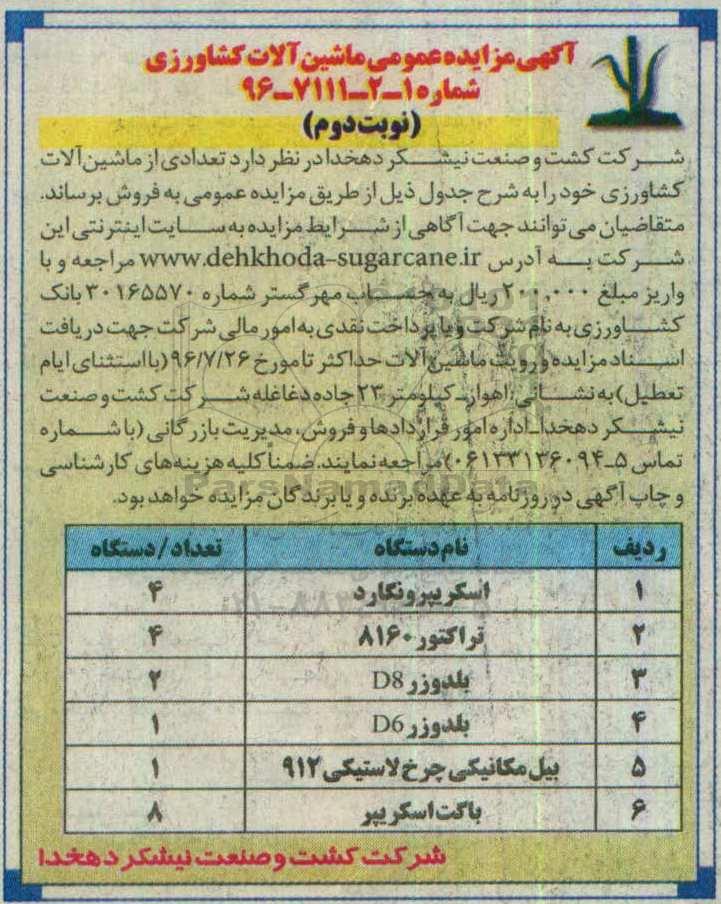 آگهی مزایده عمومی ماشین آلات کشاورزی
شماره ۱-۲-۷۱۱۱-۹۶
(نوبت دوم)
شرکت کشت و صنعت نیشکر دهخدا در نظر دارد تعدادی از ماشین آلات
کشاورزی خود را به شرح جدول ذیل از طریق مزایده عمومی به فروش برساند.
متقاضیان می توانند جهت آگاهی از شرایط مزایده به سایت اینترنتی این
شرکت به آدرس www.dehkhoda-sugarcane.ir مراجعه و با
واریز مبلغ ۲۰۰,۰۰۰ ریال به حساب مهر گستر شماره ۳۰۱۶۵۵۷۰ بانک
کشاورزی به نام شرکت و یا پرداخت نقدی به امور مالی شرکت جهت دریافت
اسناد مزایده و رویت ماشین آلات حداکثر تا مورخ ۹۶/۷/۲۶ (با استثنای ایام
تعطیل) به نشانی: اهواز-کیلومتر ۲۳ جاده دغاغله شرکت کشت و صنعت
نیشکر دهخدا-اداره امور قراردادها و فروش، مدیریت بازرگانی (با شماره
تماس ۵-۰۶۱۳۳۱۳۶۰۹۴) مراجعه نمایند. ضمناً کلیه هزینه های کارشناسی
و چاپ آگهی در روزنامه به عهده برنده و یا برندگان مزایده خواهد بود.
ParsNamadData
ردیف نام دستگاه تعداد/دستگاه
۱ اسکریپر ونگارد ۴
۲ تراکتور ۸۱۶۰ ۴
۳ بلدوزر D8 ۲
۴ بلدوزر D6 ۱
۵ بیل مکانیکی چرخ لاستیکی ۹۱۲ ۱
۶ باکت اسکریپر ۸
شرکت کشت و صنعت نیشکر دهخدا